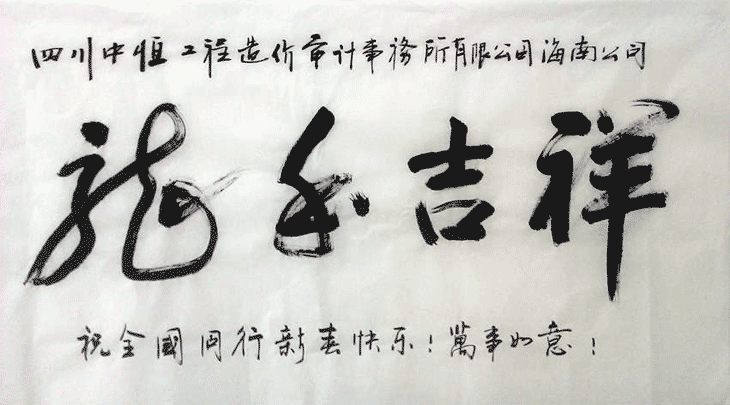 四川中恒工程造价审计事務所有限公司海南公司
龍年吉祥
祝全國同行新春快乐！萬事如意！